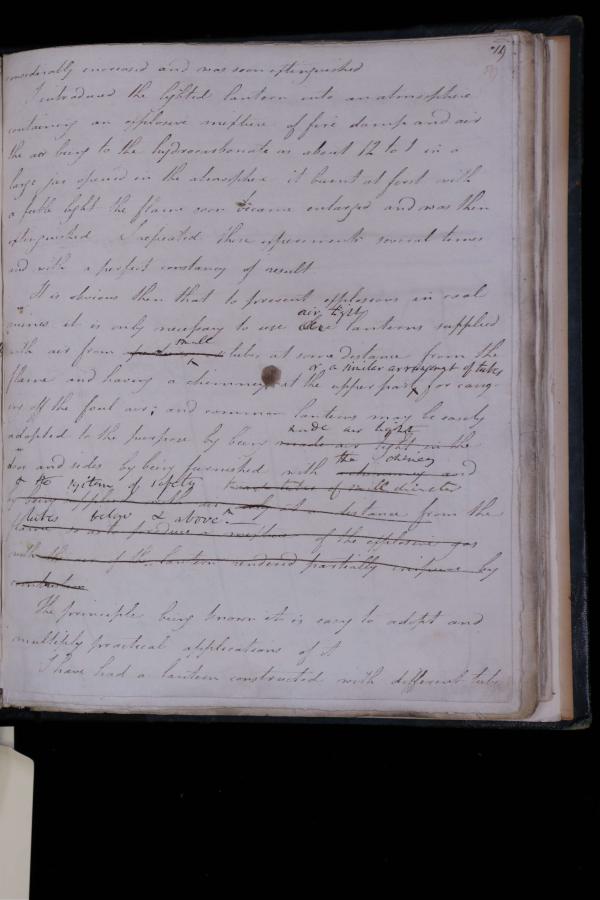 79
considerably increased and was soon extinguished
I introduced the lighted lantern into an atmosphere
containing an explosive mixture of fire damp and air
the air being to the hydrocarbonate as about 12 to 1 in a
large jar opened in the atmosphere it burnt at first with
a feeble light the flame soon became enlarged and was then
extinguished I repeated these experiments several times
and with a perfect constancy of result
It is obvious then that to prevent explosions in coal
air tight
mines it is only necessary to use lanterns supplied
small
with air from tubes at some distance from the
or a similar arrangement of tubes
flame and having a chimney at the upper part for carry-
ing off the foul air; and common lanterns may be easily
made air tight
adapted to the purpose by being made air tight in the
the chimney
door and sides by being furnished with a chimney and
& the system of safety tubes of small diameter
by being supplied with air only at a distance from the
tubes below & above.
so as to produce a mixture of the explosive gas
with the of the lantern rendered partially by

The principle being known it is easy to adopt and
multiply practical applications of it
I have had a lantern constructed with different tubes